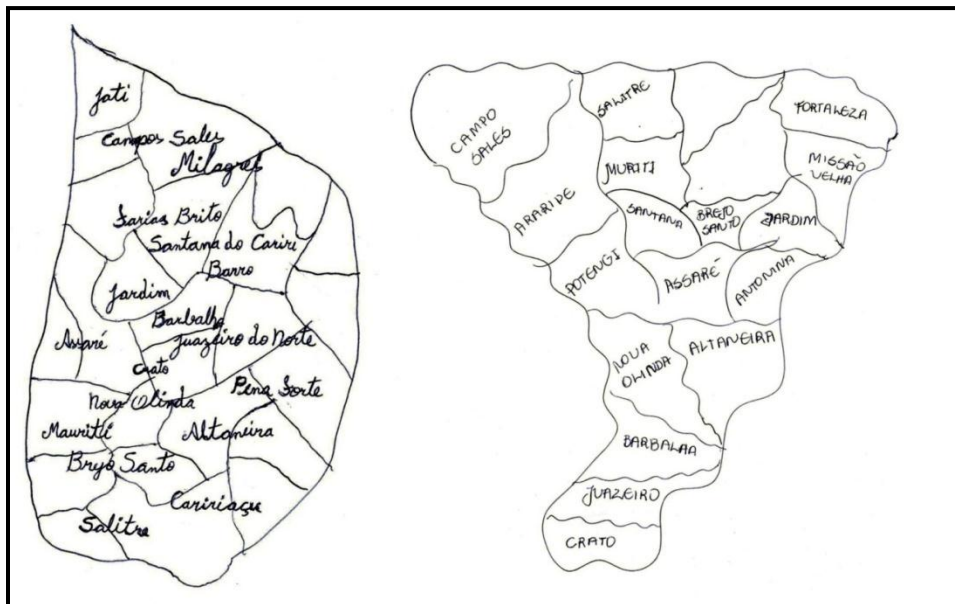 Jati
Campos Sales
Milagres
Farias Brito
Santana do Cariri
Barro
Jardim
Barbalha
Juazeiro do Norte
Assaré
Crato
Pena Forte
Nova Olinda
Mauriti
Altaneira
Brejo Santo
Caririaçu
Salitre
CAMPO
SALES
SALITRE
FORTALEZA
MISSÃO
VELHA
MURITI
ARARIPE
SANTANA
BREJO
SANTO
JARDIM
POTENGI
ASSARÉ
ANTONINA
NOVA
OLINDA
ALTANEIRA
BARBALAA
JUAZEIRO
CRATO